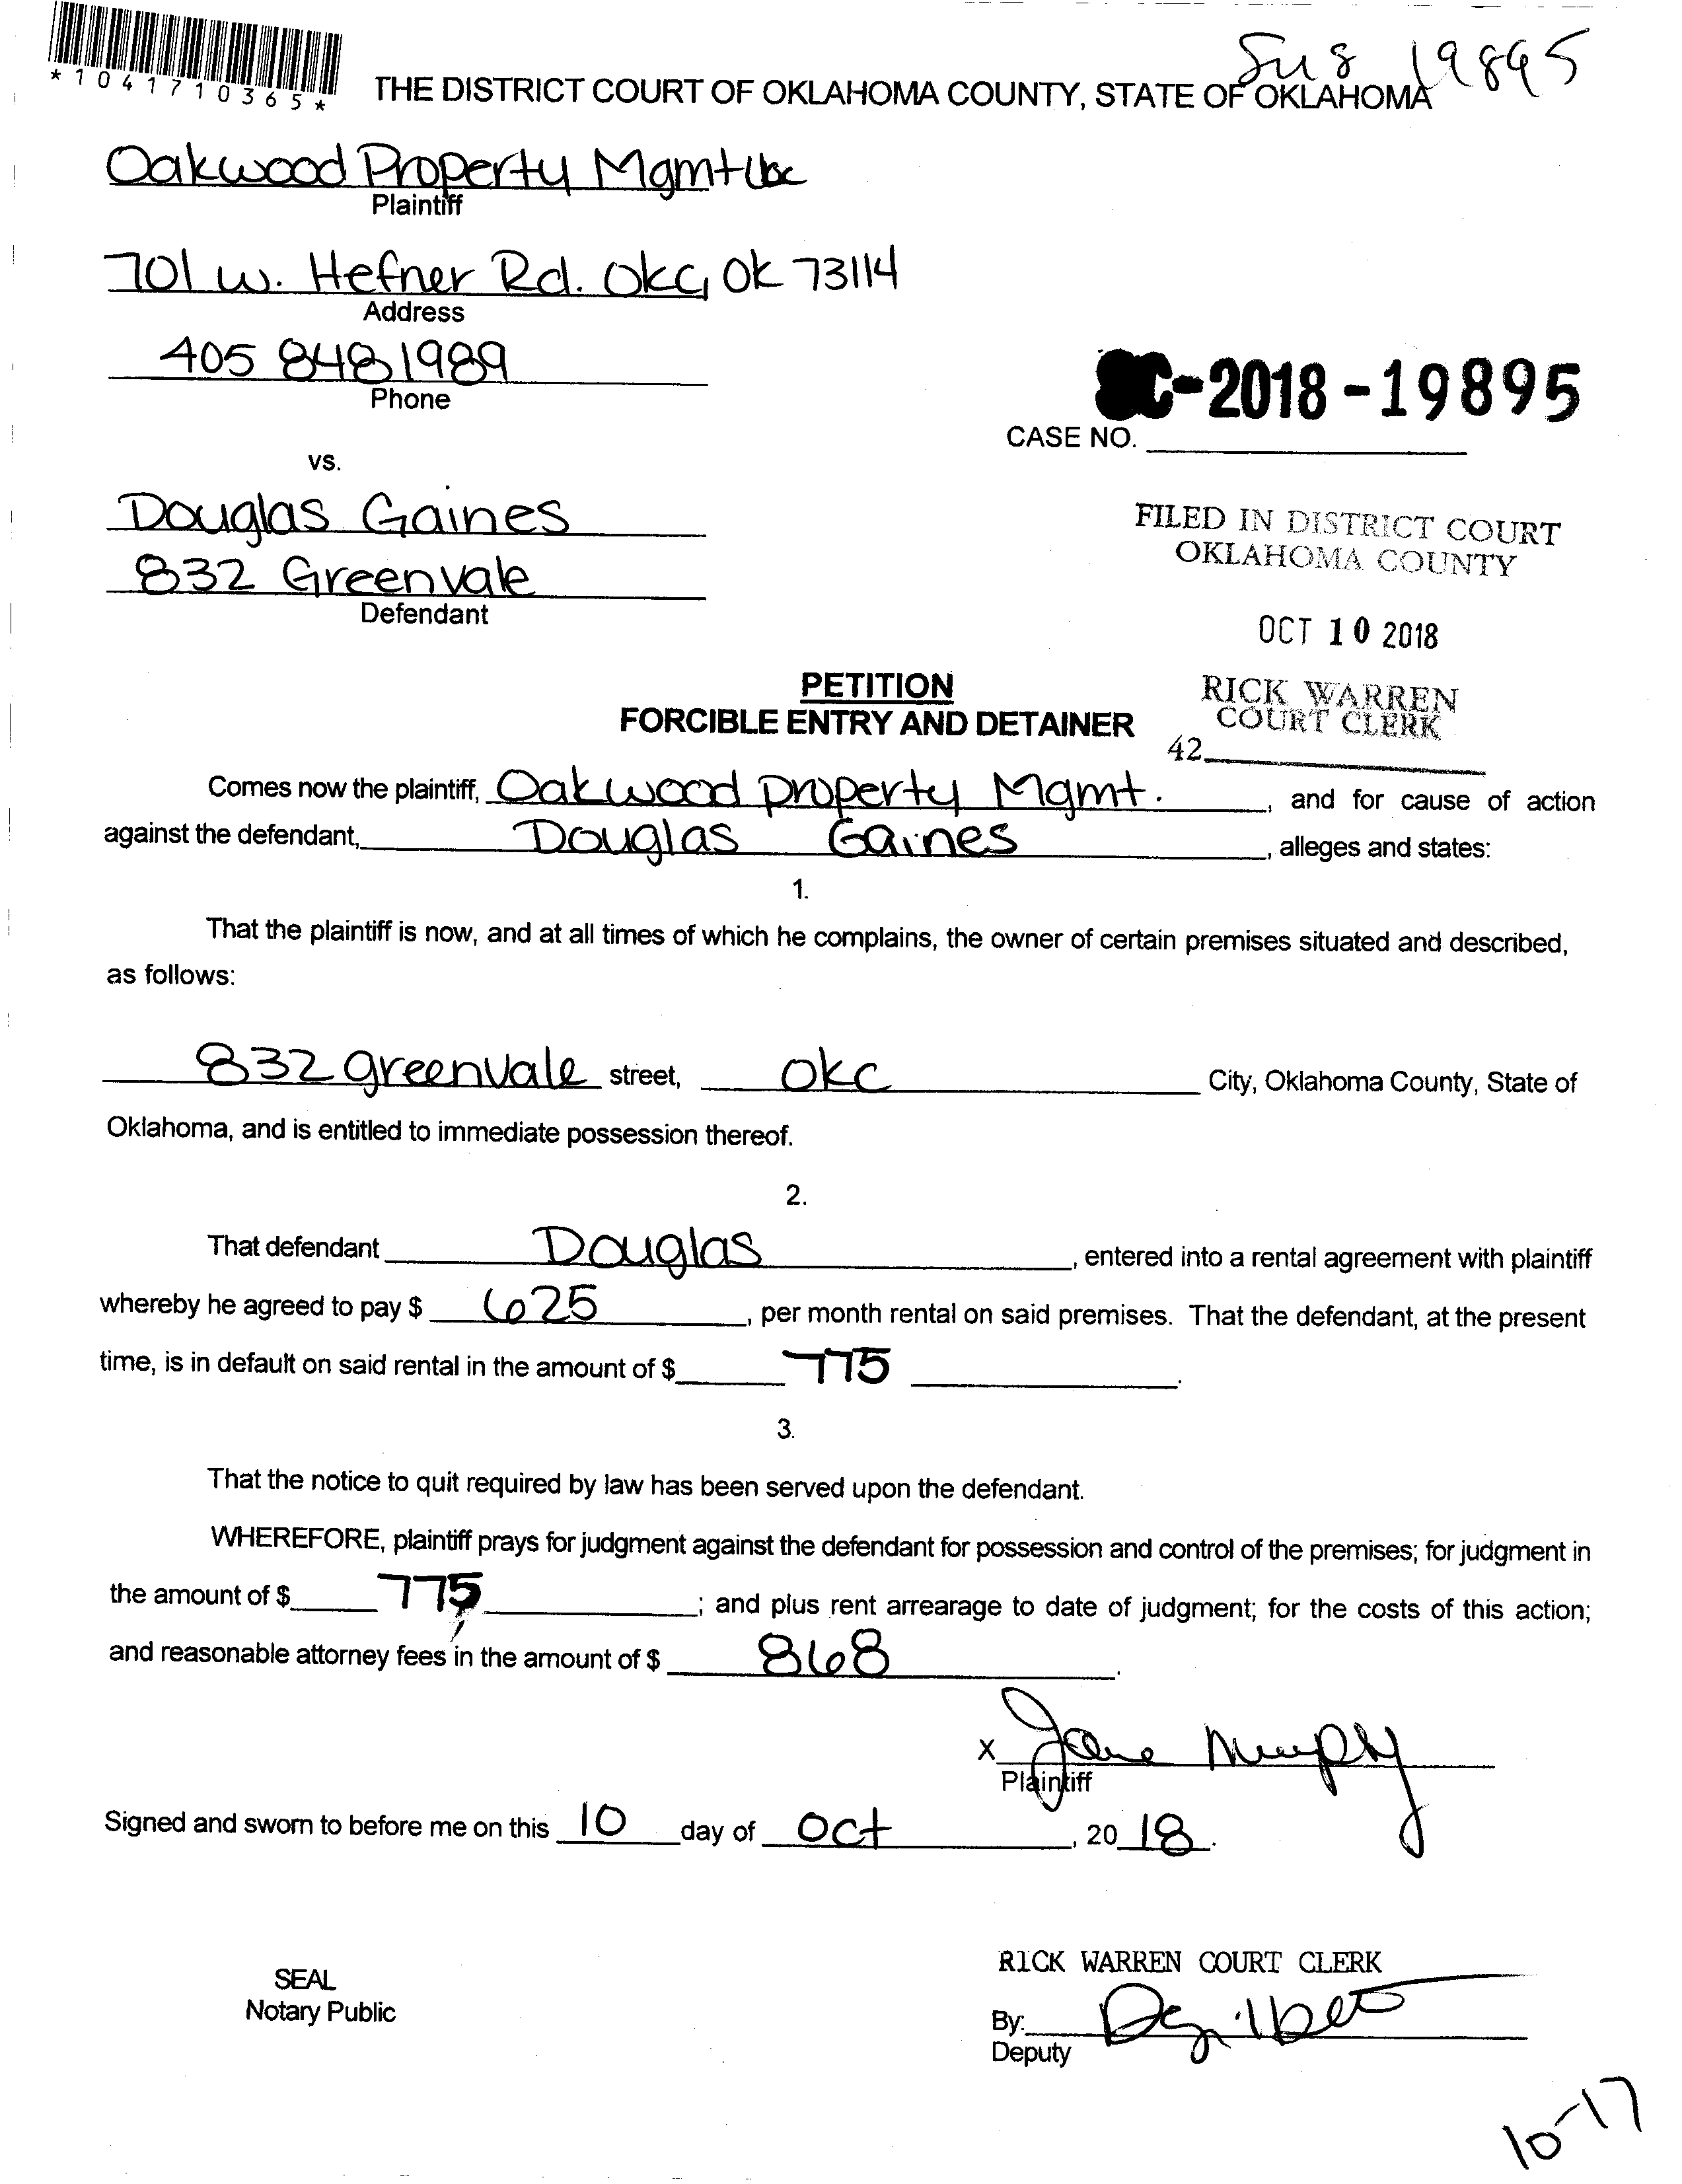 *1041710365*
19895
THE DISTRICT COURT OF OKLAHOMA COUNTY, STATE OF OKLAHOMA
Oakwood Property Mgmt
Plaintiff
701 W. Hefner Rd. OKC, OK 73114
Address
405 848 1989
Phone
SC-2018-19895
CASE NO.
vs.
Douglas Gaines
832 Greenvale
Defendant
FILED IN DISTRICT COURT
OKLAHOMA COUNTY
OCT 10 2018
RICK WARREN
COURT CLERK
42
PETITION
FORCIBLE ENTRY AND DETAINER
Comes now the plaintiff, Oakwood property Mgmt. , and for cause of action
against the defendant, Douglas Gaines , alleges and states:
1.
That the plaintiff is now, and at all times of which he complains, the owner of certain premises situated and described,
as follows:
832 greenvale street, OKC City, Oklahoma County, State of
Oklahoma, and is entitled to immediate possession thereof.
2.
That defendant Douglas , entered into a rental agreement with plaintiff
whereby he agreed to pay $ 625 , per month rental on said premises. That the defendant, at the present
time, is in default on said rental in the amount of $ 775 .
3.
That the notice to quit required by law has been served upon the defendant.
WHEREFORE, plaintiff prays for judgment against the defendant for possession and control of the premises; for judgment in
the amount of $ 775 ; and plus rent arrearage to date of judgment; for the costs of this action;
and reasonable attorney fees in the amount of $ 868 .
X Jane Murphy
Plaintiff
Signed and sworn to before me on this 10 day of Oct , 20 18 .
SEAL
Notary Public
RICK WARREN COURT CLERK
By:
Deputy
10-17